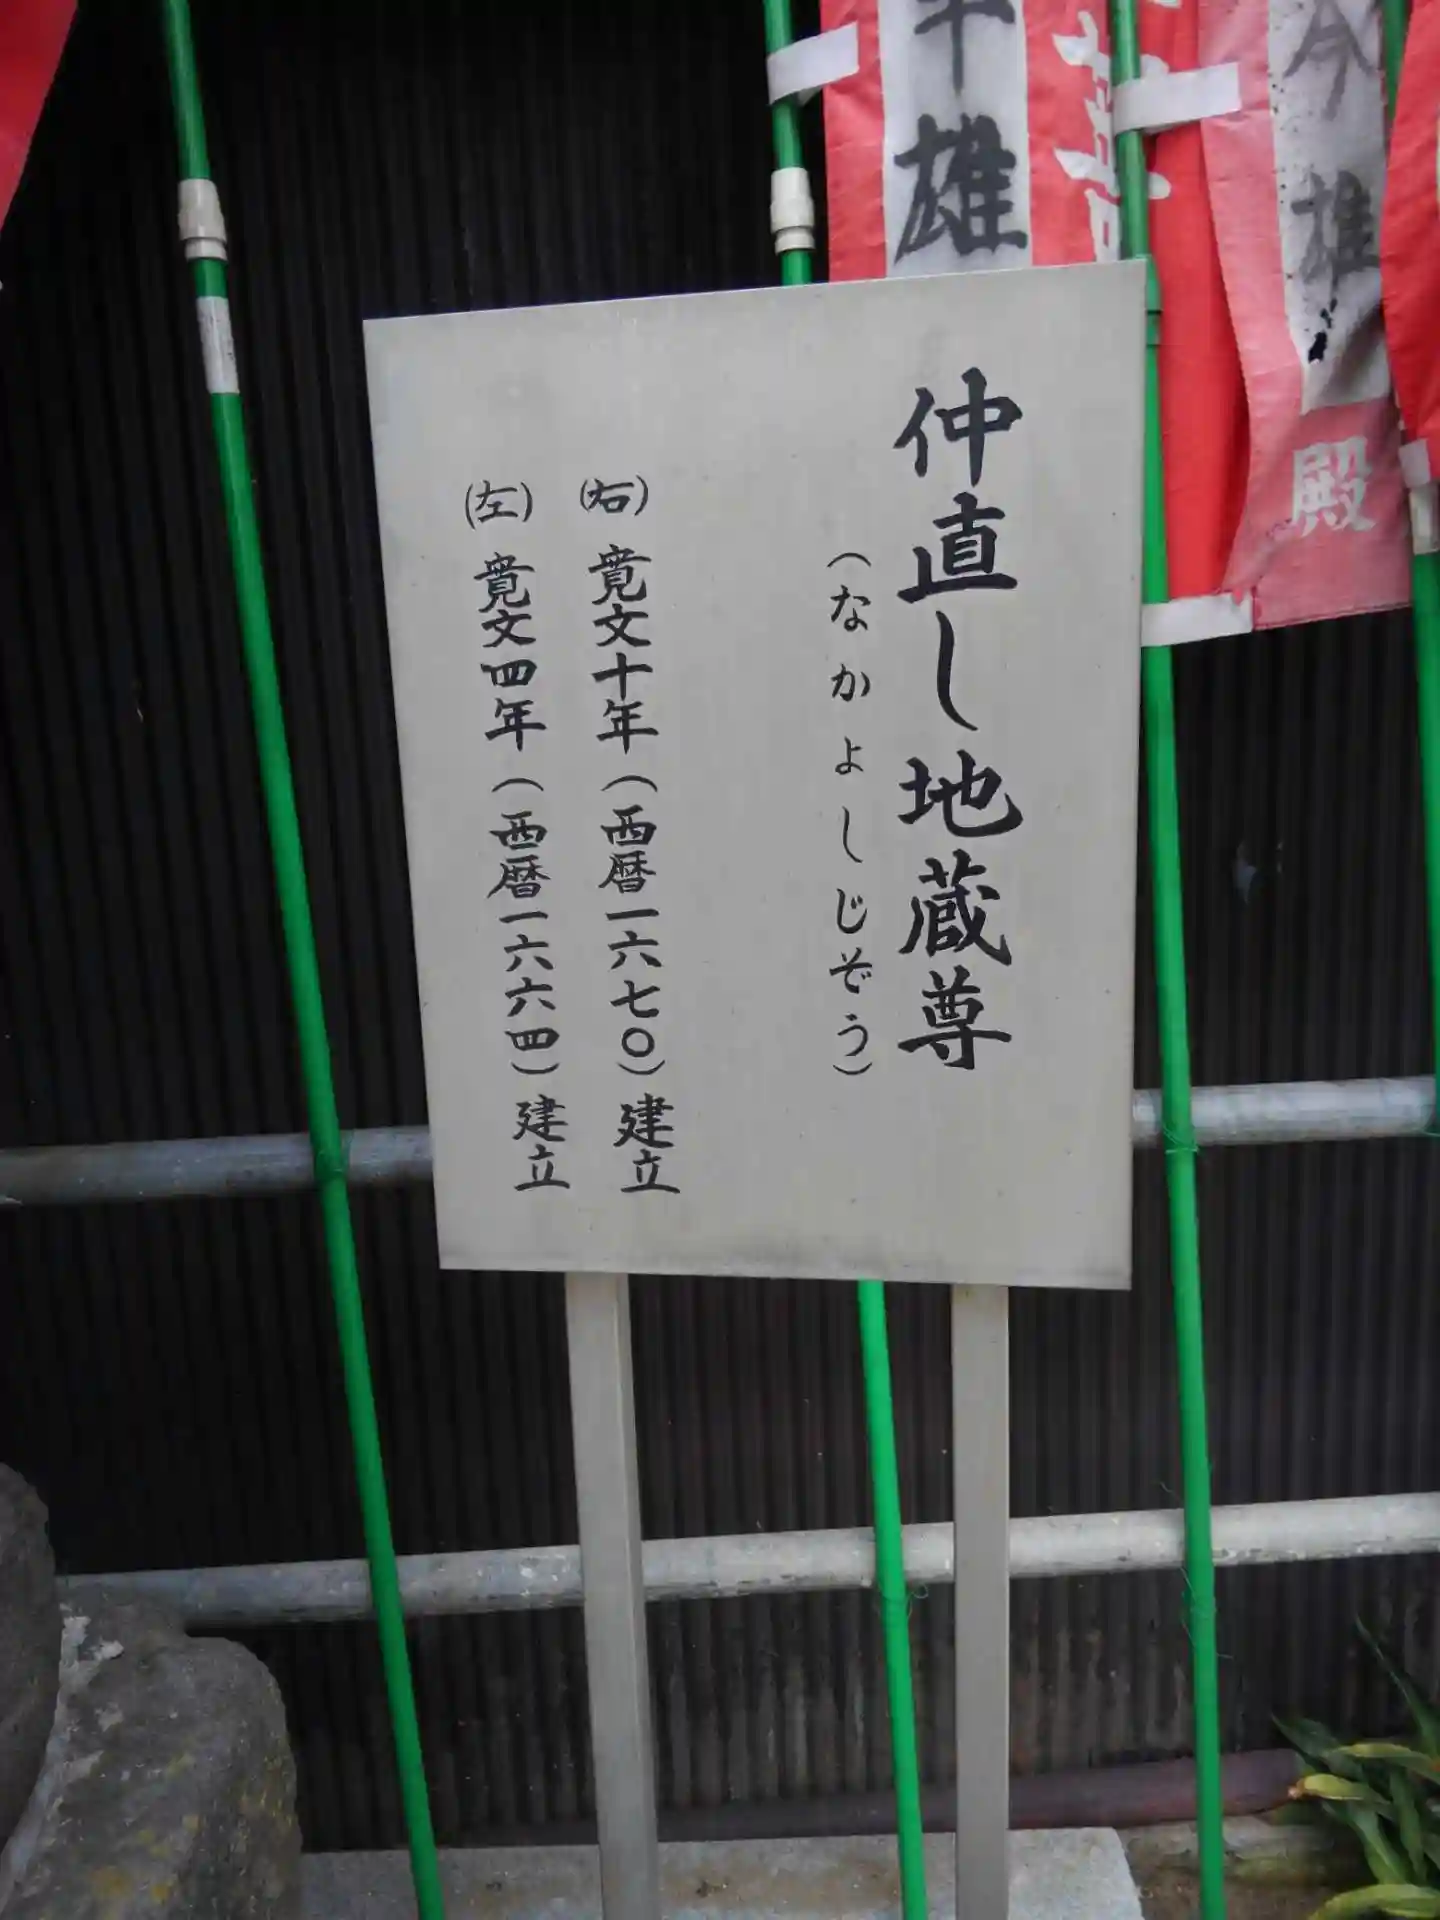 仲直し地蔵尊
(なかよしじぞう)
(右)寛文十年(西暦一六七〇)建立
(左) 寛文四年(西暦一六六四)建立
雄
今雄
殿